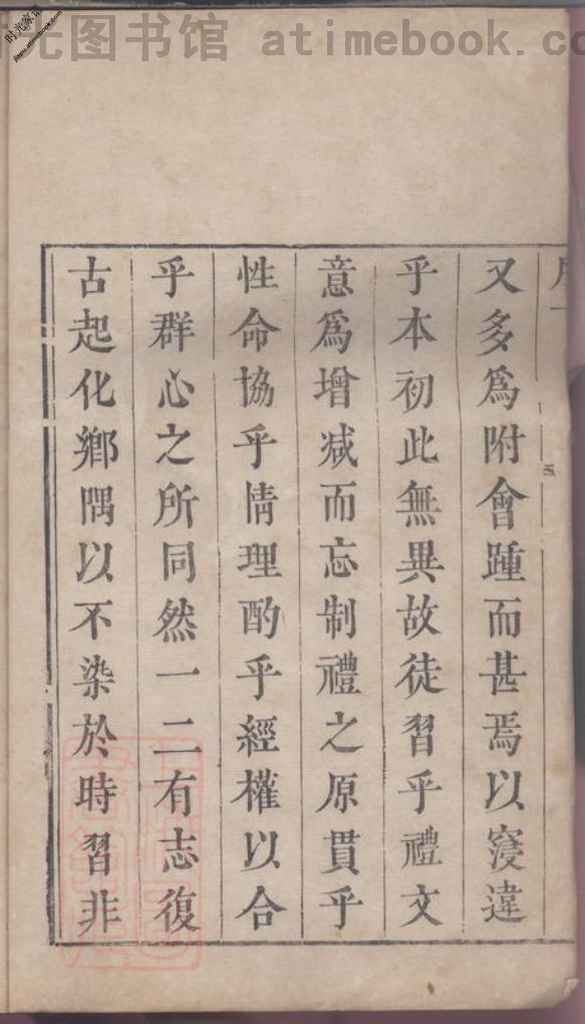 光图书馆 atimebook.co
又多為附會踵而甚焉以寖違
乎本初此無異故徒習乎禮文
意為增減而忘制禮之原貫乎
性命協乎情理酌乎經權以合
乎群心之所同然一二有志復
古起化鄉隅以不染於時習非